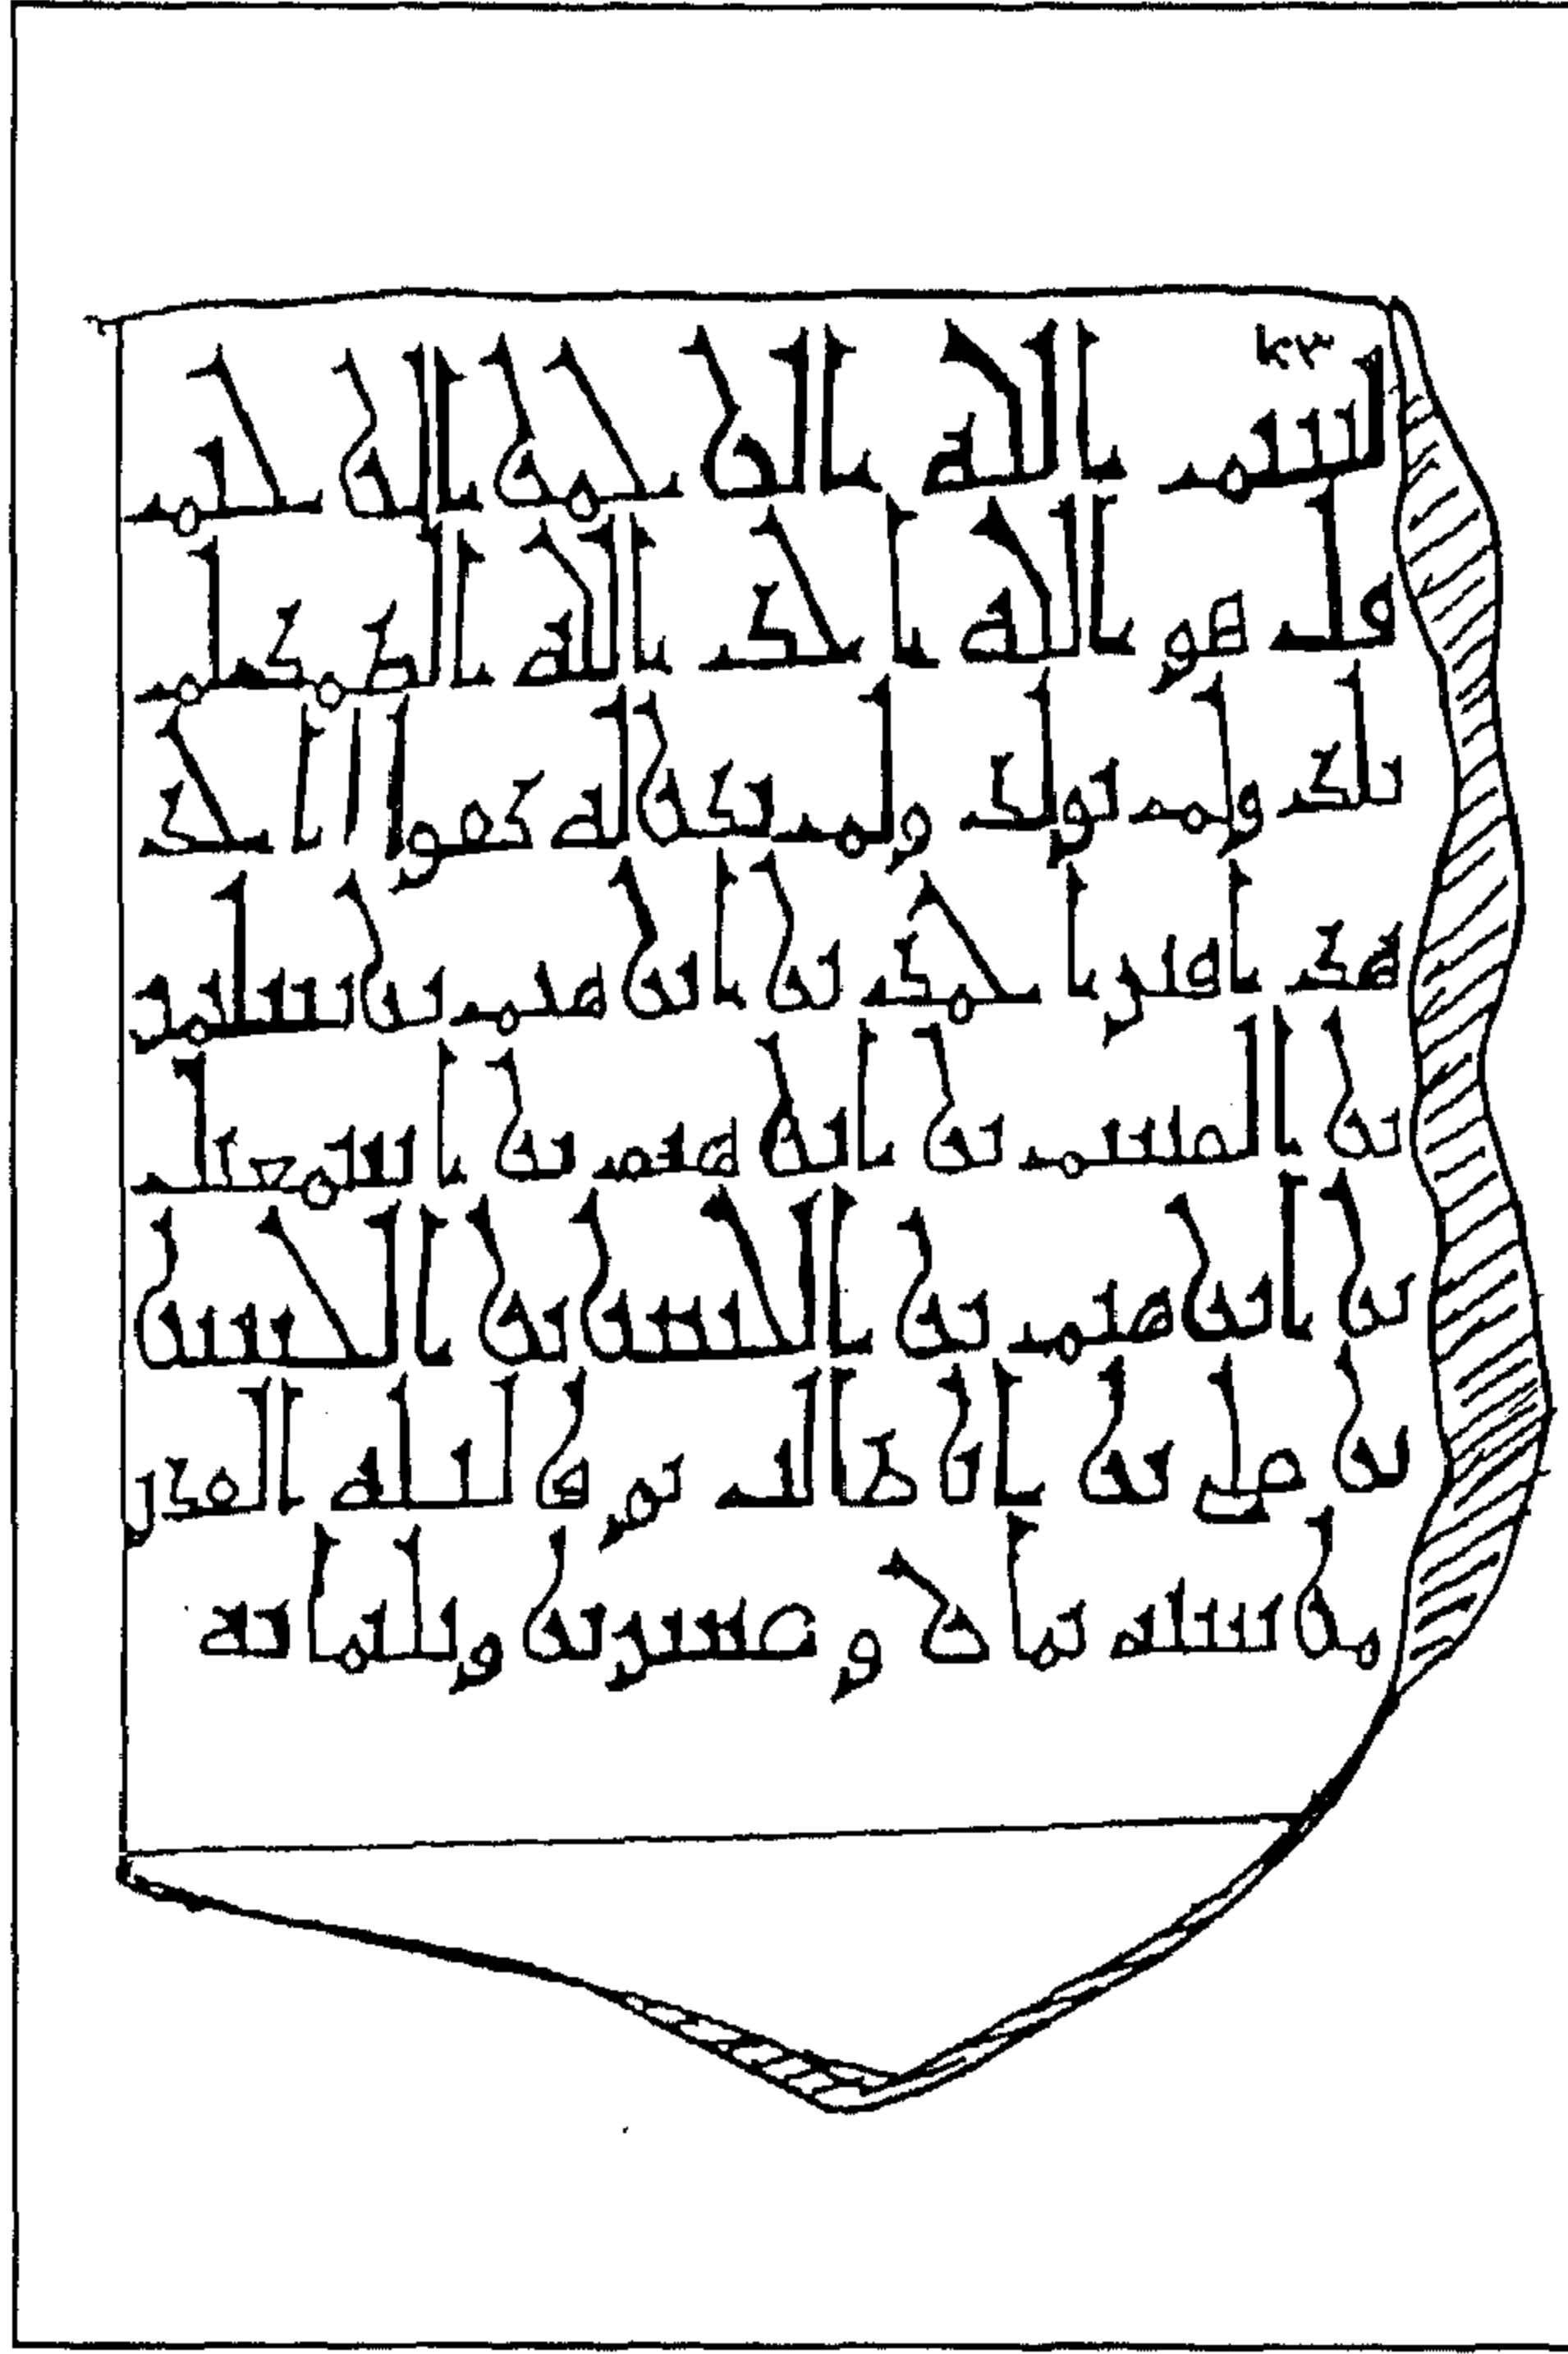 بسم الله الرحمن الرحيم
قل هو الله احد الله الصمد لم
يلد ولم يولد ولم يكن له كفوا احد
هذا قبر احمد بن ابرهيم بن سليمن
بن القسم بن ابرهيم بن اسمعيل
بن ابرهيم بن الحسن بن الحسن
بن علي بن ابي طالب توفي ليلة الفطر
من سنة ثمان وعشرين وثلثمائة